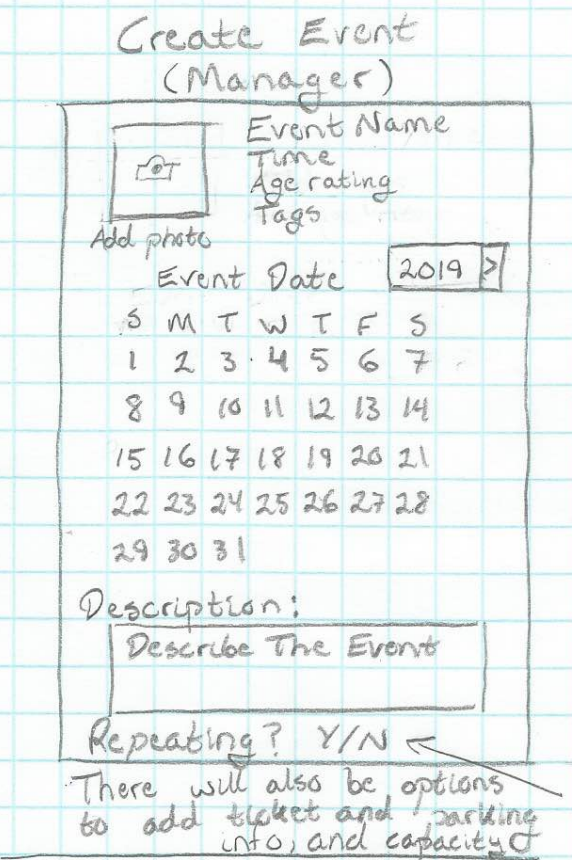 Create Event
(Manager)
Event Name
Time
Age rating
Tags
Add photo
Event Date 2019 >
S M T W T F S
1 2 3 4 5 6 7
8 9 10 11 12 13 14
15 16 17 18 19 20 21
22 23 24 25 26 27 28
29 30 31
Description:
Describe The Event
Repeating? Y/N
There will also be options
to add ticket and parking
info, and capacity